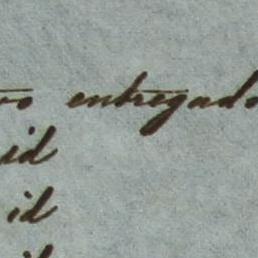 entregado
id
id